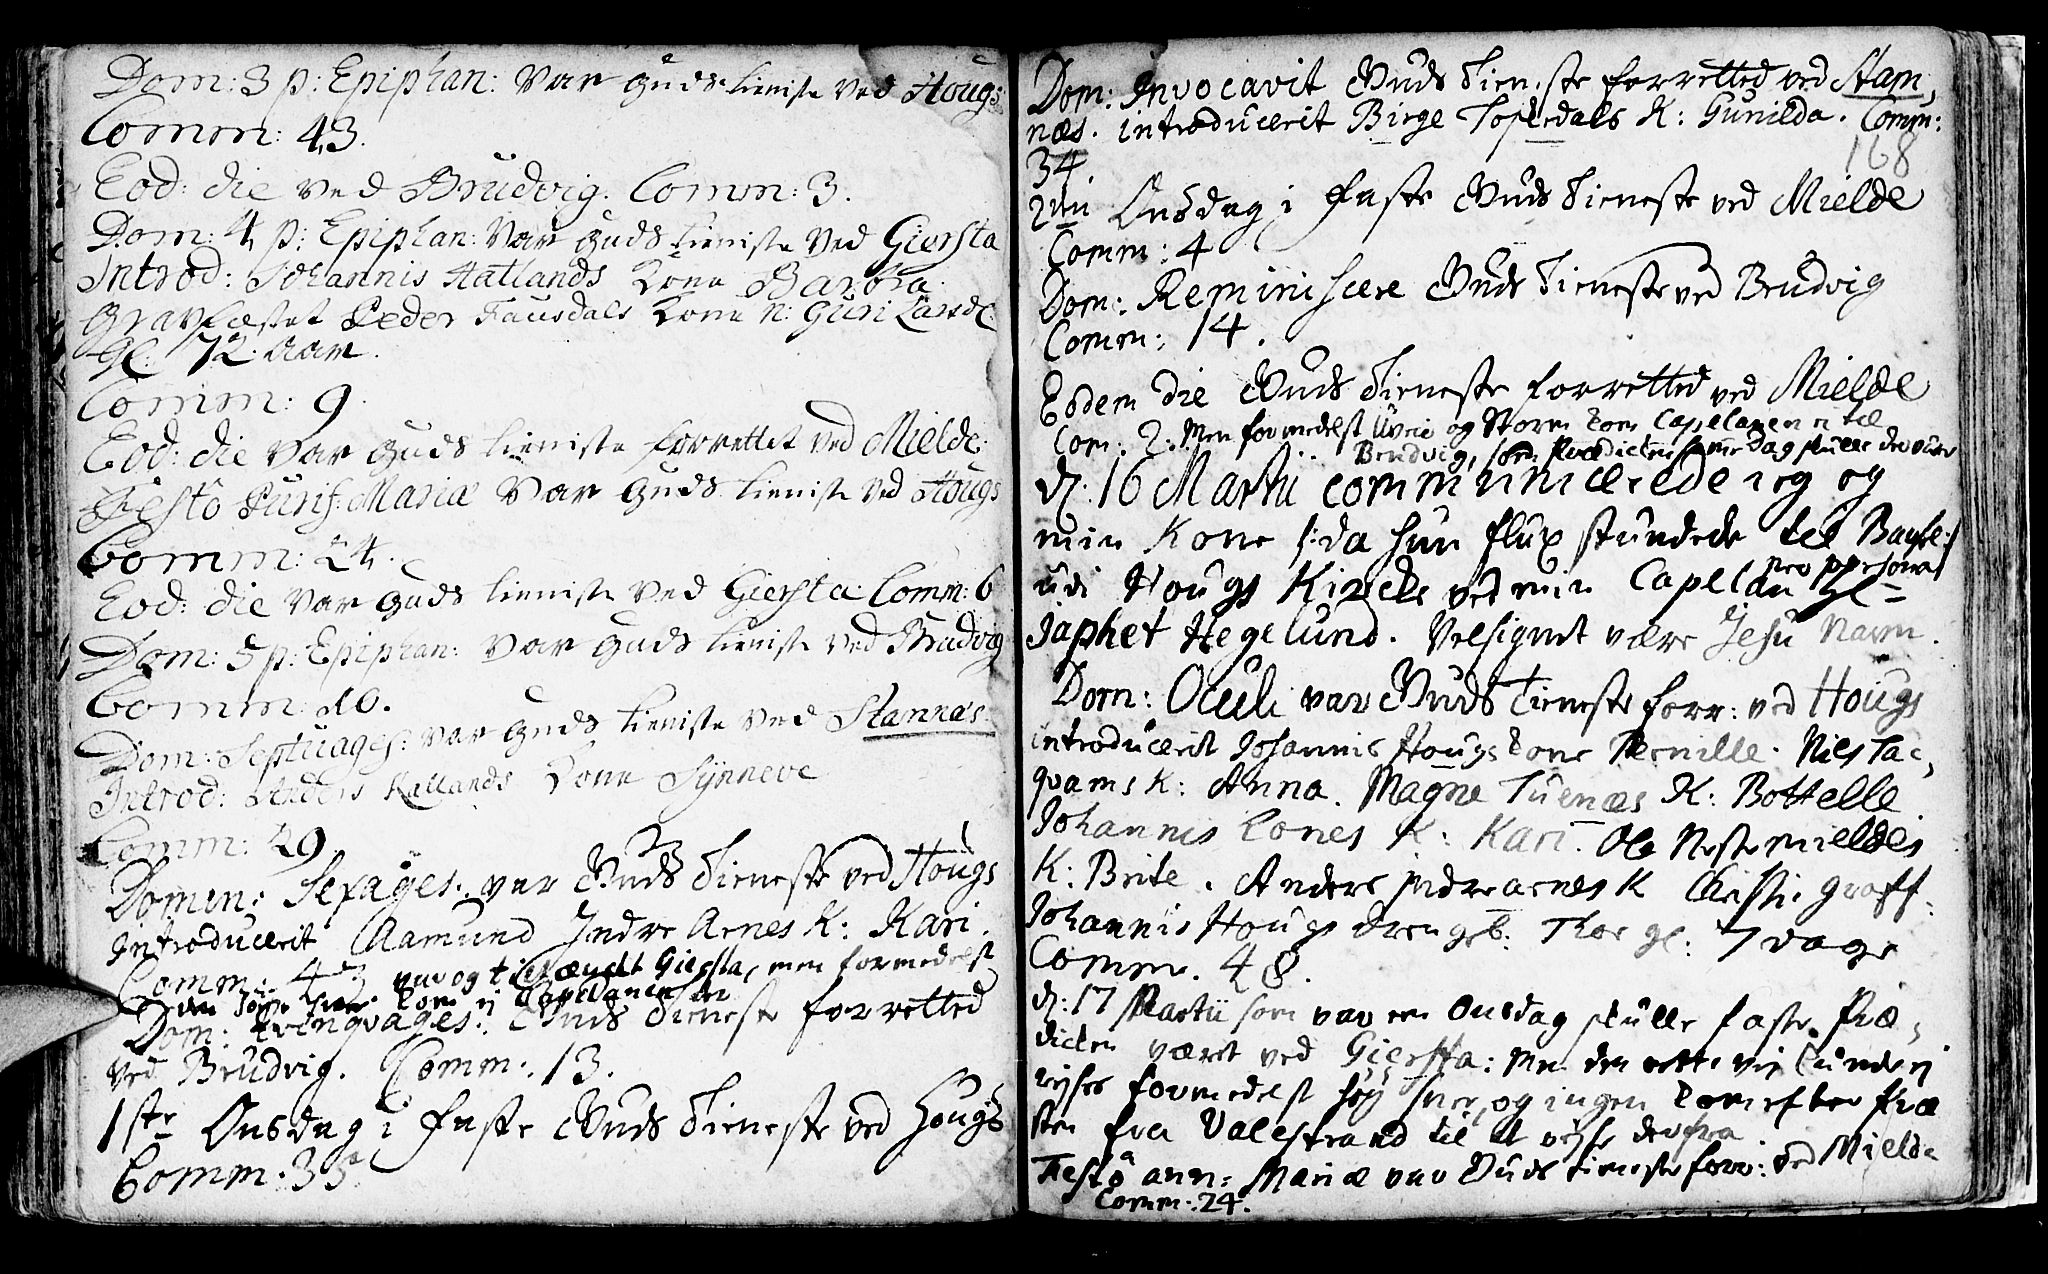 Dom: 3 p: Epiphan: var guds tieniste ved Hougs
Comm: 43.
Eod: die ved Brudvig. Comm: 3.
Dom: 4 p: Epiphan: var guds tieniste ved Giersta
Introd: Johannis Hatlands Kone Barbra.
Gravfæstet Peder Fausdals Kone n: Guri Larsd:
gl: 72. Aar.
Comm: 9.
Eod: die var guds tieniste forrettet ved Mielde.
Festo Purif: Mariæ var guds tieniste ved Hougs
Comm: 24.
Eod: die var guds tieniste ved Giersta Comm: 6
Dom: 5 p: Epiphan: var guds tieniste ved Brudvig
Comm: 10.
Dom: Septuages: var guds tieniste ved Stamnæs.
Introd: Anders Kallands Kone Synneve
Comm: 29.
Domin: Sexages: var Guds Tieneste ved Hougs
introducerit Aamund Indre Arnes K: Kari.
Comm: 43 var og tilsændt Giersta, men formedelst
Kom ej Capellanen der
Dom: Qvinqvages: Guds Tieneste forretted
ved Brudvig. Comm: 13.
1ste Onsdag i Faste Guds Tieneste ved Hougs
Comm: 35.
Dom: Invocavit Guds Tieneste forretted ved Stam,
næs. introducerit Birge Toskedals K: Gunilda. Comm:
34.
168
2den Onsdag i Faste Guds Tieneste ved Mielde
Comm: 4
Dom: Reminiscere Guds Tieneste ved Brudvig
Comm: 14.
Eodem die Guds Tieneste forretted ved Mielde
Com: 2. Men formedelst Uveir og Storm kom Capellanen ei til
Brudvig, som Prædicken samme dag skulle der være
d: 16 Martii communicerede ieg og
min Kone /: da hun flux stundede til Barsel :/
udi Hougs Kircke ved min Capellan Hr
Japhet Hegelund. Velsignet være Jesu Navn.
Dom: Oculi var Guds Tieneste forr: ved Hougs
introducerit Johannis Hougs Kone Pernille. Niels Tac,
qvams K: Anna. Magne Tuenæs K: Bottelle
Johannis Lones K: Kari. Ole Nestemieldes
K: Brite. Anders indre arnes K Christi. graff:
Johannis Hougs dreng b: Thor gl: 7 dage
Comm. 48.
d: 17 Martii som var en Onsdag skulle faste Præ,
dicken været ved Giersta: Men den rette vei kunde ej
reises formedelst høy snee, og ingen kom efter Præ
sten fra Valestrand til at reise derfra
Festo ann: Mariæ var Guds tieneste forr: ved Mielde
Comm: 24.